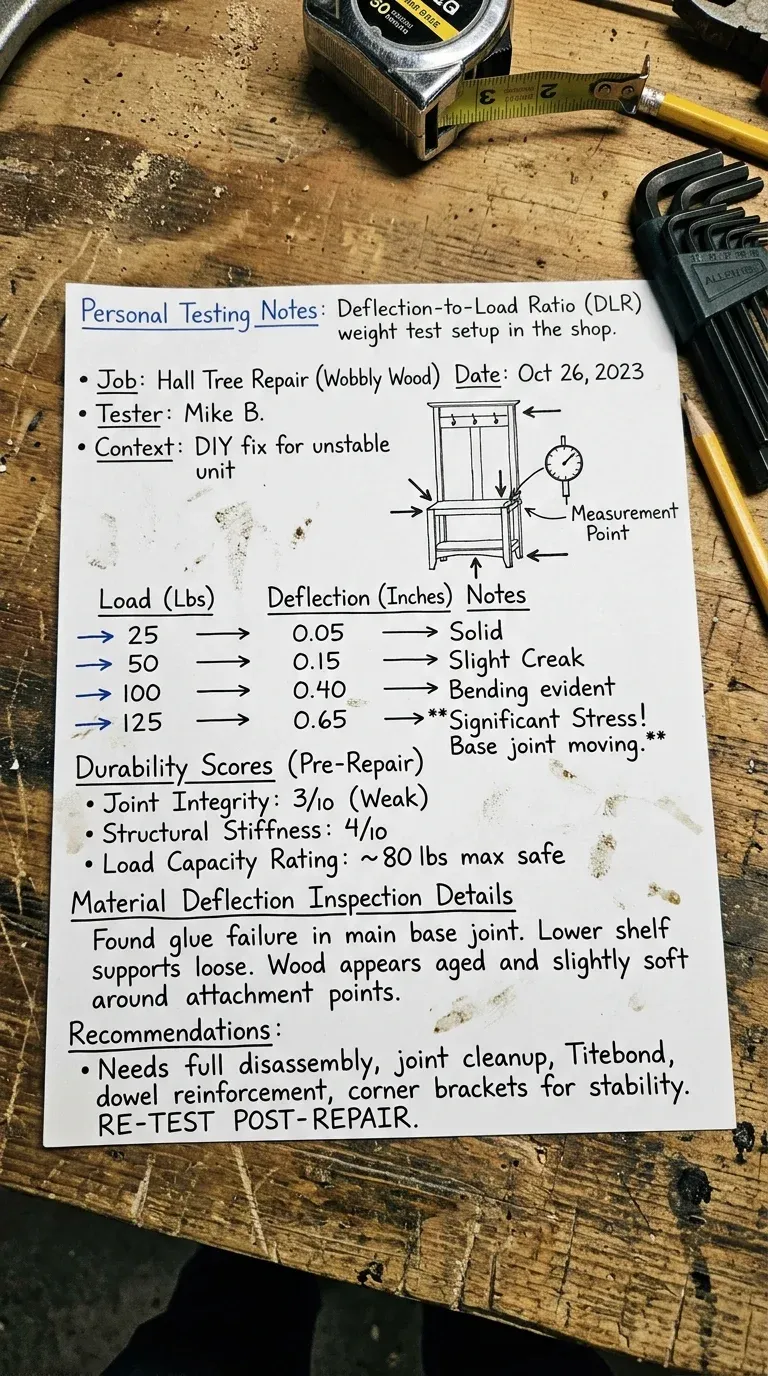 3 2
ALLEN
Personal Testing Notes: Deflection-to-Load Ratio (DLR)
weight test setup in the shop.
• Job: Hall Tree Repair (Wobbly Wood) Date: Oct 26, 2023
• Tester: Mike B.
• Context: DIY fix for unstable
unit
Measurement
Point
Load (Lbs) Deflection (Inches) Notes
→ 25 → 0.05 → Solid
→ 50 → 0.15 → Slight Creak
→ 100 → 0.40 → Bending evident
→ 125 → 0.65 → **Significant Stress!
Base joint moving.**
Durability Scores (Pre-Repair)
• Joint Integrity: 3/10 (Weak)
• Structural Stiffness: 4/10
• Load Capacity Rating: ~80 lbs max safe
Material Deflection Inspection Details
Found glue failure in main base joint. Lower shelf
supports loose. Wood appears aged and slightly soft
around attachment points.
Recommendations:
• Needs full disassembly, joint cleanup, Titebond,
dowel reinforcement, corner brackets for stability.
RE-TEST POST-REPAIR.